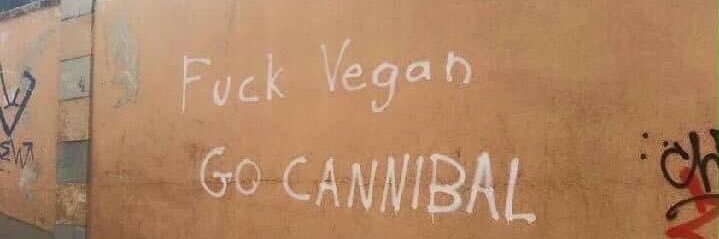 Fuck Vegan
GO CANNIBAL